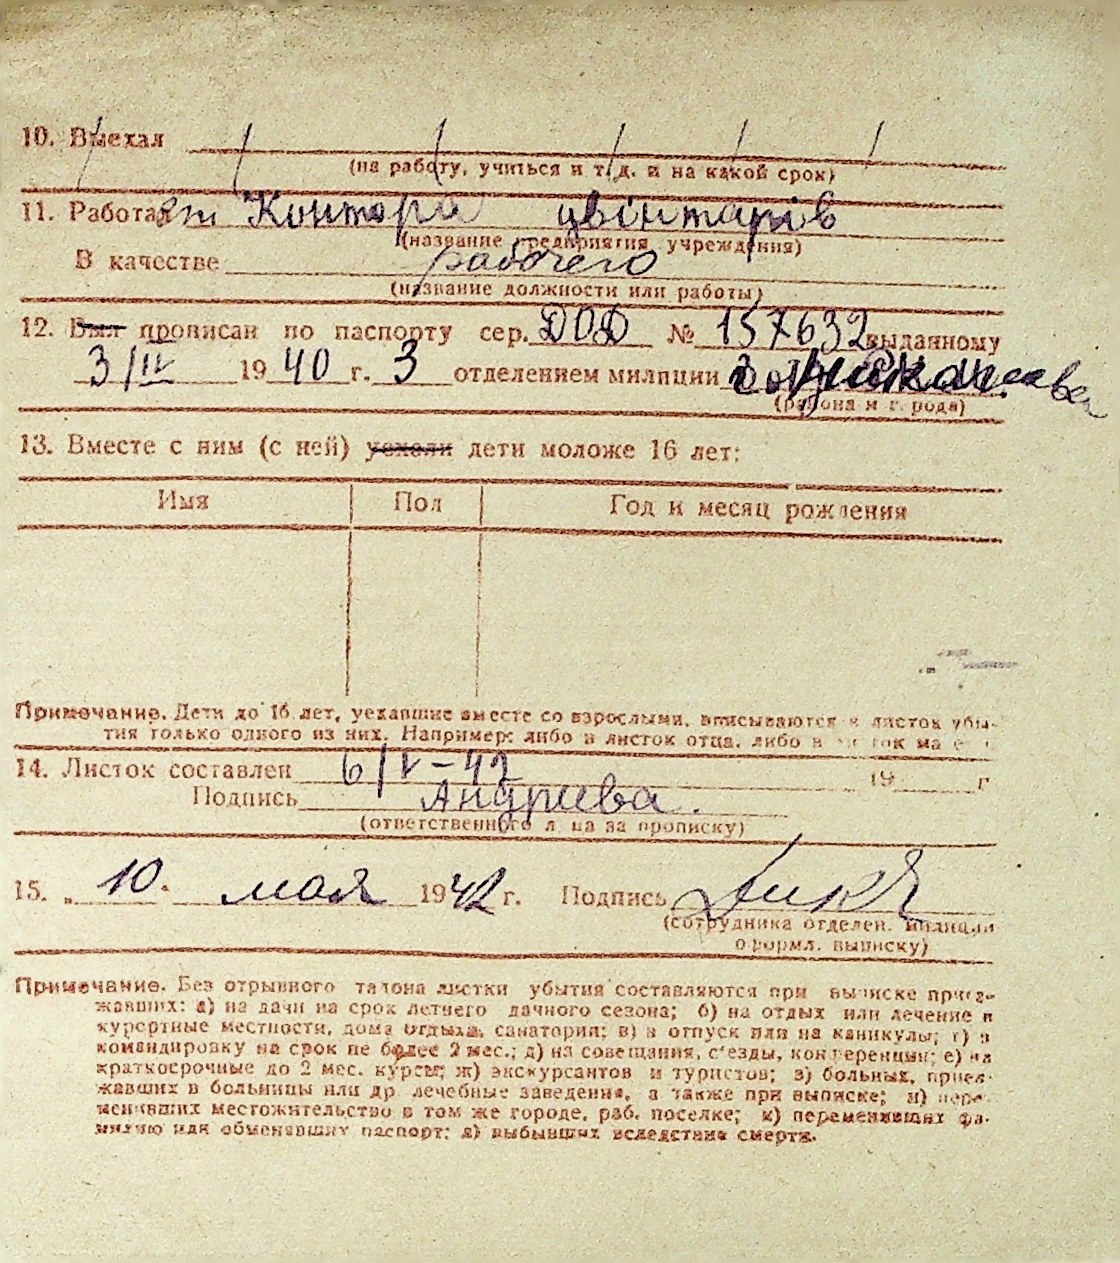 10. Выехал
(на работу, учиться и т. д. и на какой срок)
11. Работает Контора цвінтарів
(название предприятия учреждения)
В качестве рабочего
(название должности или работы)
12. Был прописан по паспорту сер. ДОД № 157632 выданному
3/IV 1940 г. 3 отделением милиции
(района и города)
13. Вместе с ним (с ней) уехали дети моложе 16 лет:
Имя Пол Год и месяц рождения
Примечание. Дети до 16 лет, уехавшие вместе со взрослыми, вписываются в листок убы-
тия только одного из них. Например: либо в листок отца, либо в листок матери.
14. Листок составлен 6/V-42 19 г
Подпись Андриева.
(ответственного лица за прописку)
15. „ 10. мая 1942 г. Подпись
(сотрудника отделен. милиции
оформл. выписку)
Примечание. Без отрывного талона листки убытия составляются при выписке приез-
жавших: а) на дачи на срок летнего дачного сезона; б) на отдых или лечение в
курортные местности, дома отдыха, санатории; в) в отпуск или на каникулы; г) в
командировку на срок не более 2 мес.; д) на совещания, с'езды, конференции; е) на
краткосрочные до 2 мес. курсы; ж) экскурсантов и туристов; з) больных, приез-
жавших в больницы или др лечебные заведения, а также при выписке; и) пере-
менивших местожительство в том же городе, раб. поселке; к) переменивших фа-
милию или обменявших паспорт; л) выбывших вследствие смерти.